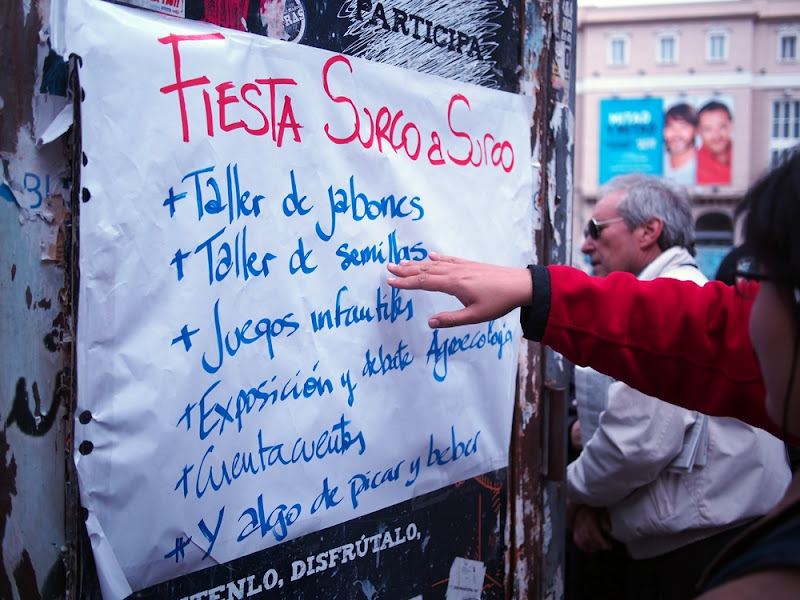 PARTICIPA
FIESTA SURCO a SURCO
+ Taller de jabones
+ Taller de semillas
+ Juegos infantiles
+ Exposición y debate Agroecología
+ Cuentacuentos
* Y algo de picar y beber
DISFRÚTALO,